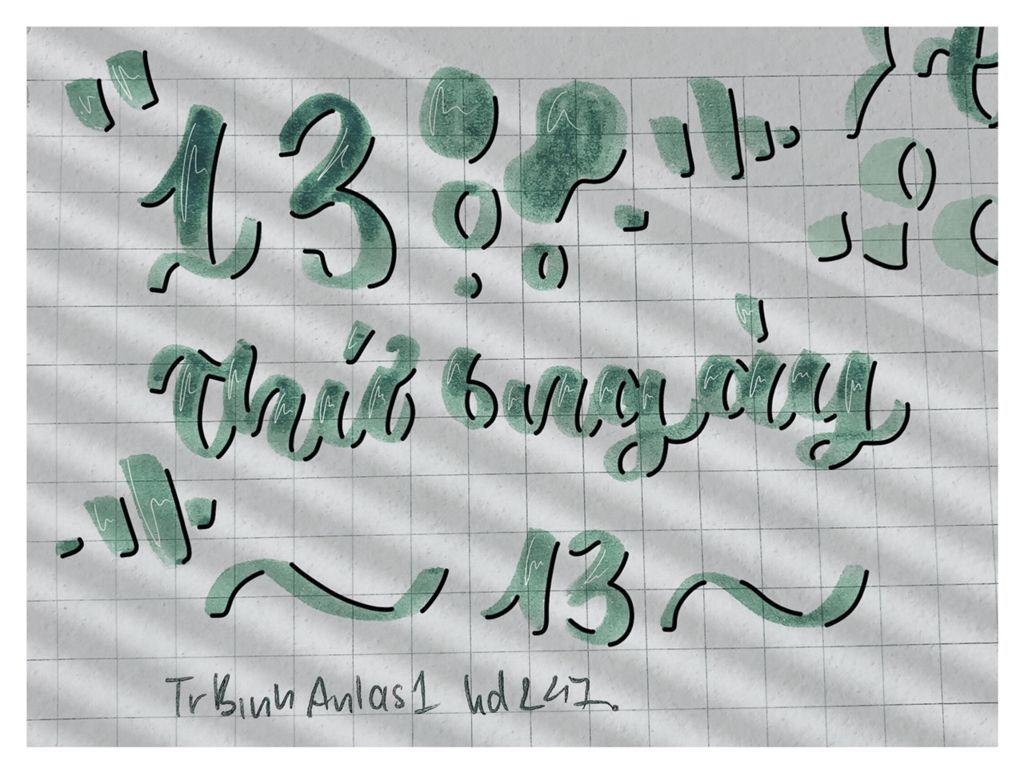 13
Thứ 6 ngày
~ 13 ~
TrBinh Anlas1 hd247.